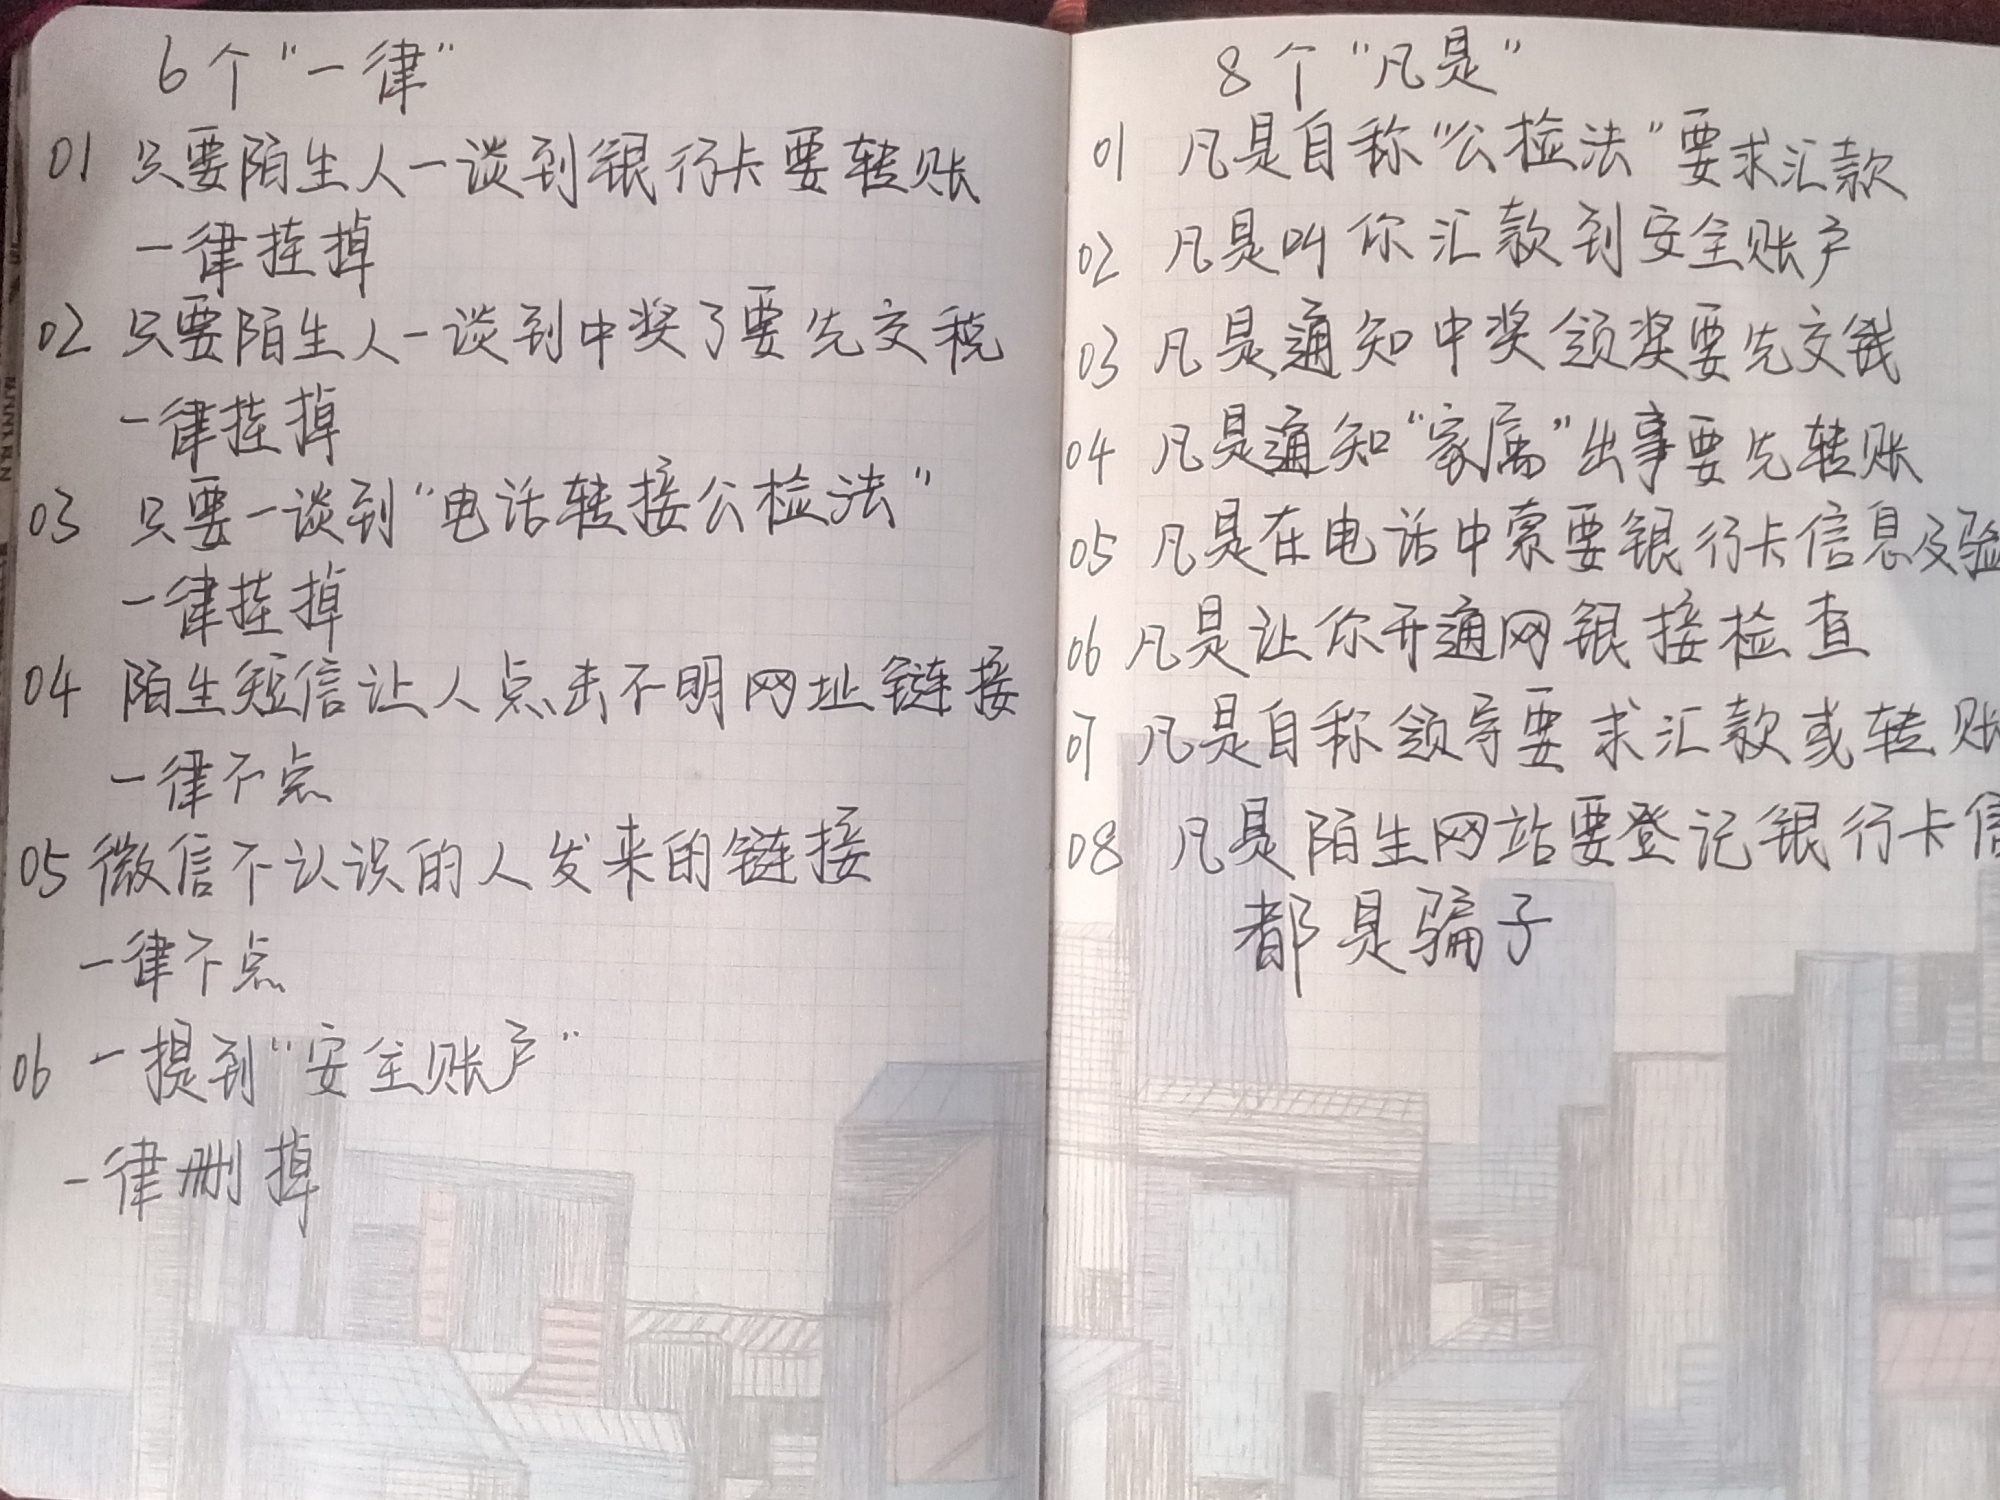 6个"一律"
01 只要陌生人一谈到银行卡要转账
一律挂掉
02 只要陌生人一谈到中奖了要先交税
一律挂掉
03 只要一谈到"电话转接公检法"
一律挂掉
04 陌生短信让人点击不明网址链接
一律不点
05 微信不认识的人发来的链接
一律不点
06 一提到"安全账户"
一律删掉
8个"凡是"
01 凡是自称"公检法"要求汇款
02 凡是叫你汇款到安全账户
03 凡是通知中奖领奖要先交钱
04 凡是通知"家属"出事要先转账
05 凡是在电话中索要银行卡信息及验
06 凡是让你开通网银接检查
07 凡是自称领导要求汇款或转账
08 凡是陌生网站要登记银行卡信
都是骗子